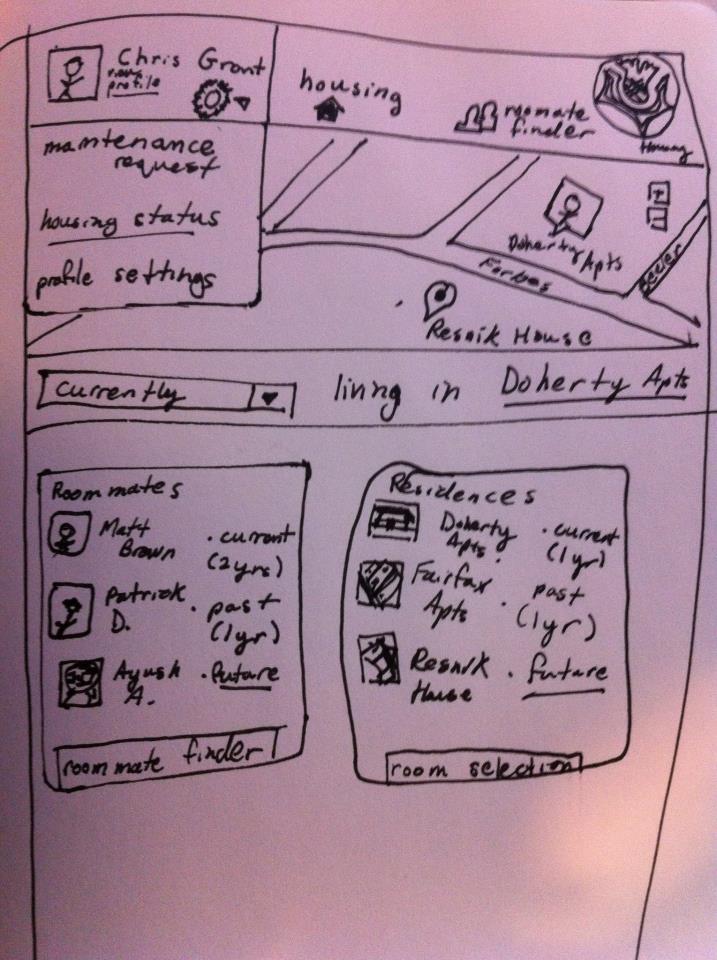 Chris Grant
profile
housing
roomate
finder
Housing
maintenance
request
housing status
profile settings
Doherty Apts
Forbes
Beeler
Resnik House
currently
living in Doherty Apts
Roommates
Matt
Brown
· current
(2yrs)
Patrick
D.
· past
(1yr)
Ayush
A.
· future
roommate finder
Residences
Doherty
Apts
· current
(1yr)
Fairfax
Apts
· past
(1yr)
Resnik
House
· future
room selection